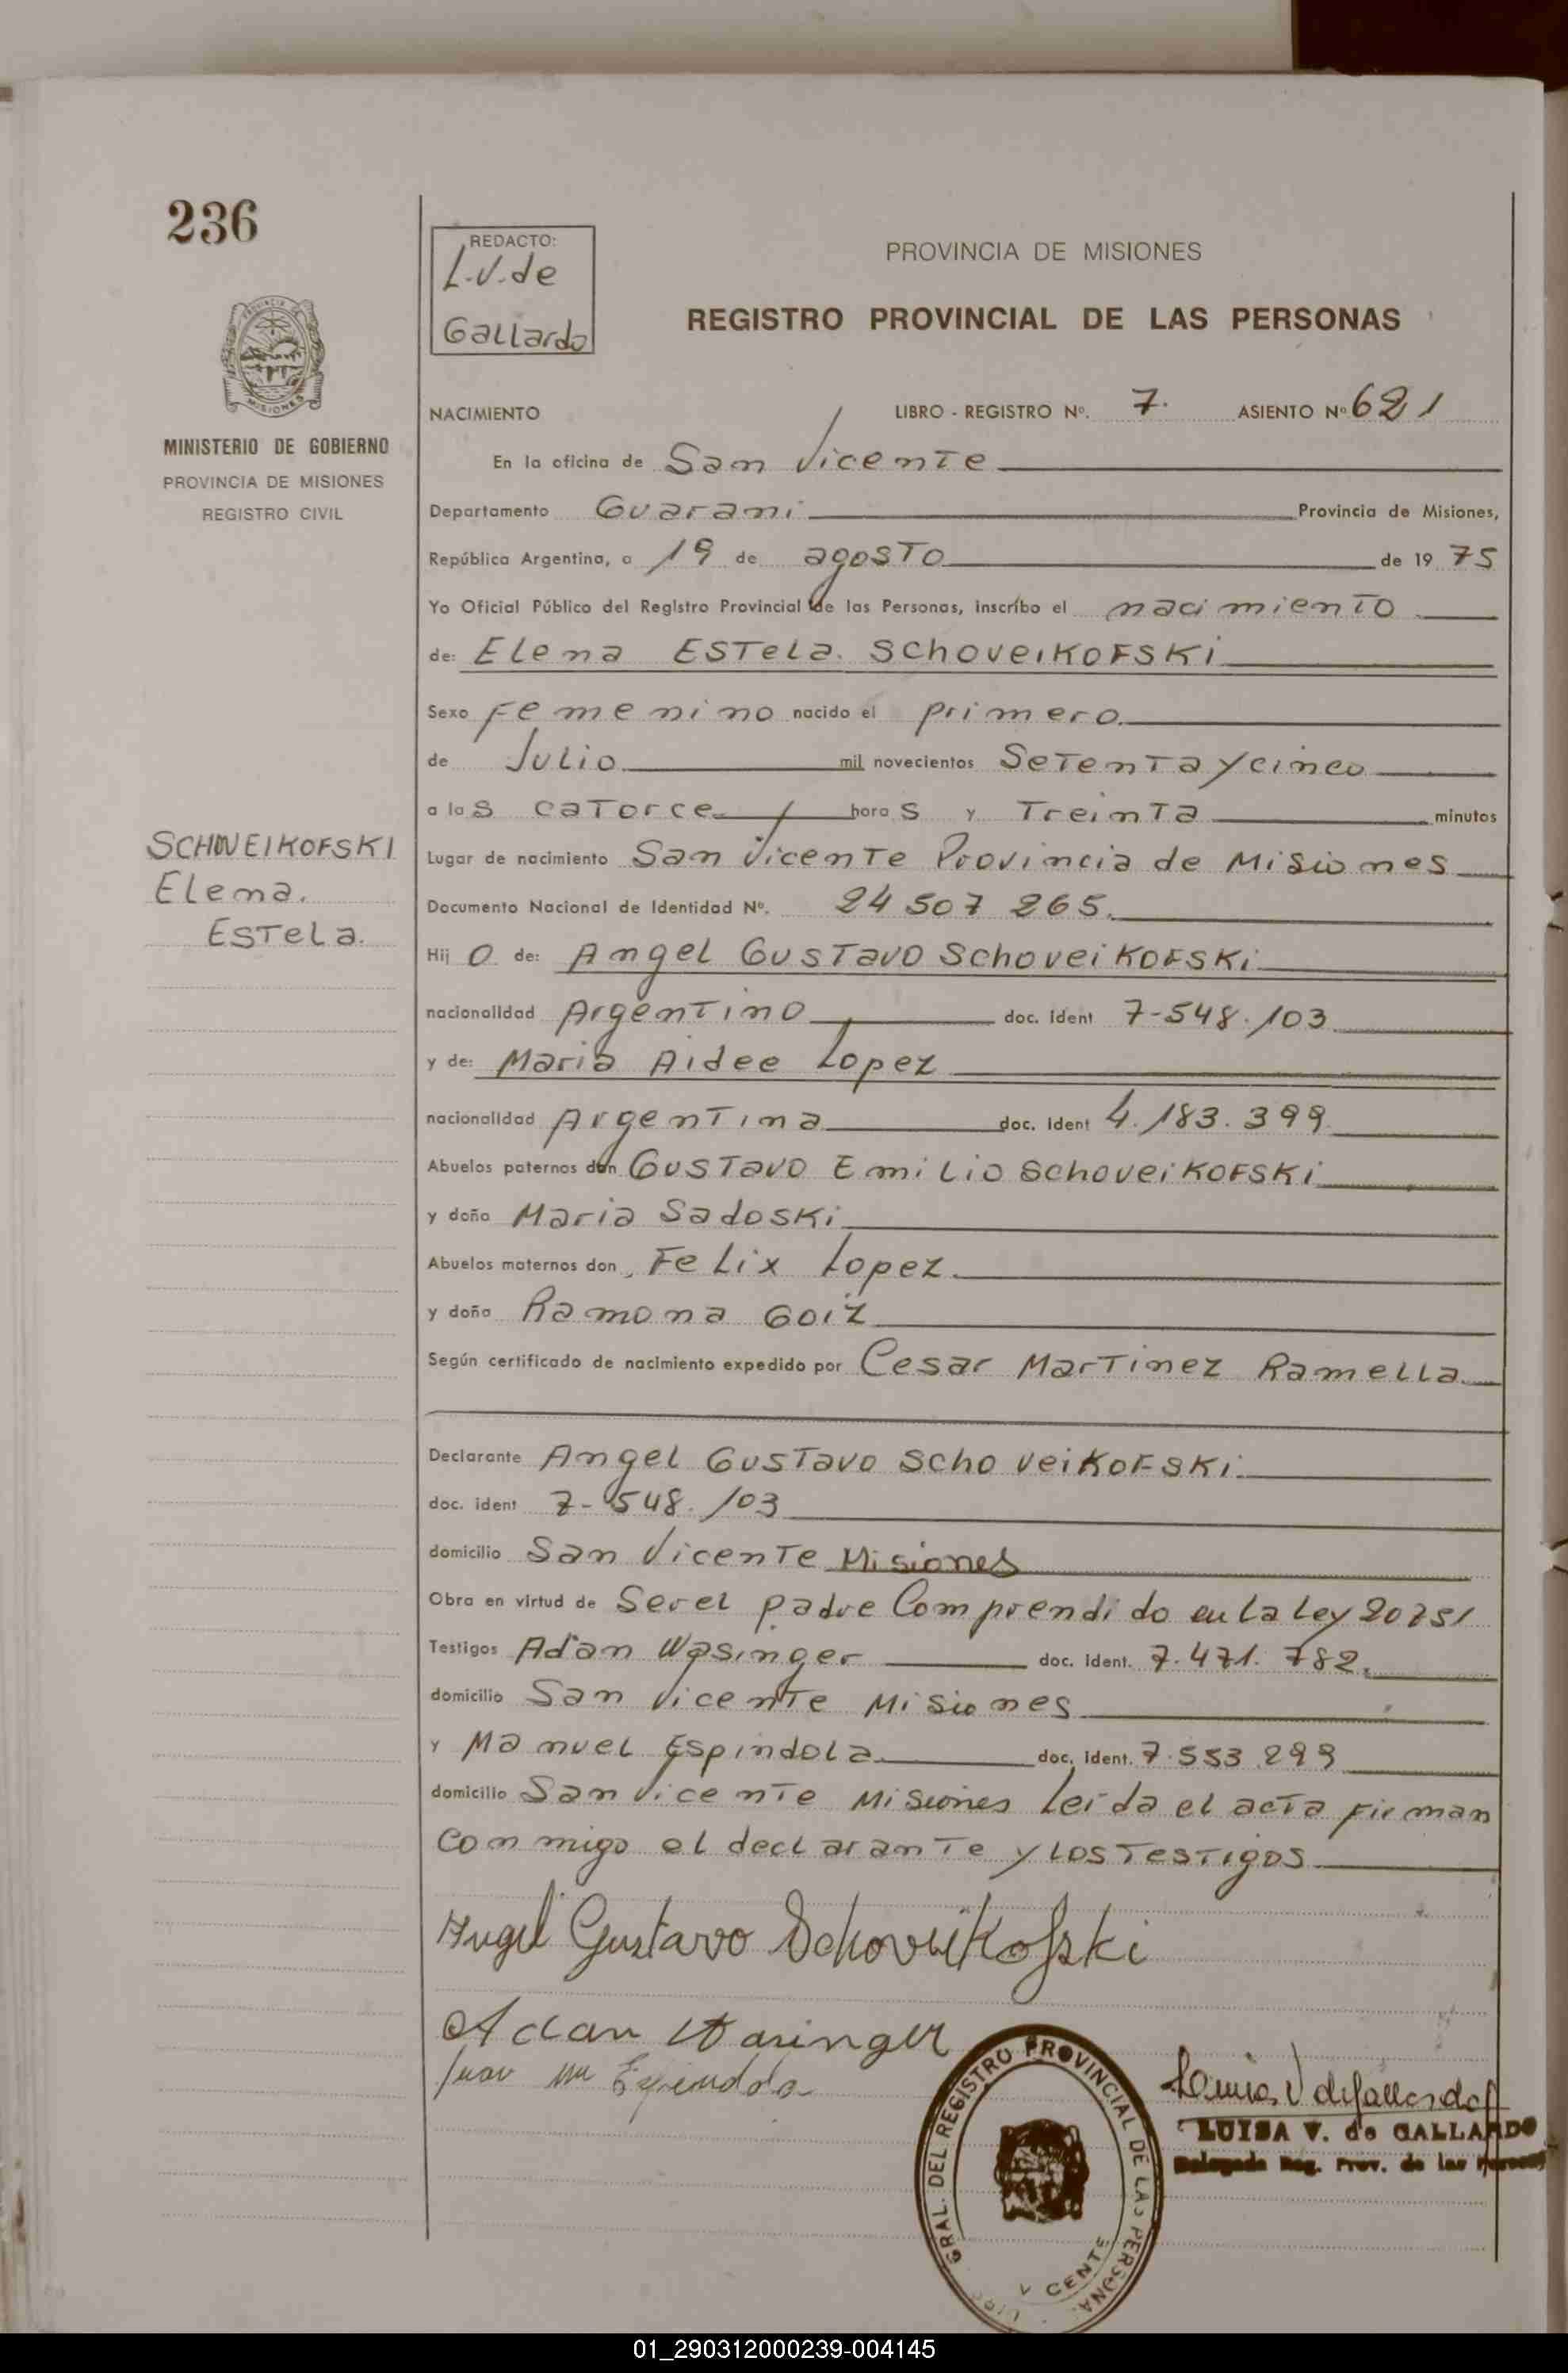 236
REDACTO:
L.V. de
Gallardo
PROVINCIA DE MISIONES
REGISTRO PROVINCIAL DE LAS PERSONAS
MISIONES
MINISTERIO DE GOBIERNO
PROVINCIA DE MISIONES
REGISTRO CIVIL
NACIMIENTO LIBRO - REGISTRO Nº. 7. ASIENTO Nº 621
En la oficina de San Vicente
Departamento Guarani Provincia de Misiones,
República Argentina, a 19 de agosto de 19 75
Yo Oficial Público del Registro Provincial de las Personas, inscribo el nacimiento
de: Elena Estela. Schoveikofski
Sexo Femenino nacido el primero
de Julio mil novecientos Setenta y cinco
a las catorce horas y Treinta minutos
SCHOVEIKOFSKI
Elena.
Estela.
Lugar de nacimiento San Vicente Provincia de Misiones
Documento Nacional de Identidad Nº. 24 507 265.
Hij o de: Angel Gustavo Schoveikofski
nacionalidad Argentino doc. ident 7-548.103
y de: Maria Aidee Lopez
nacionalidad Argentina doc. ident 4.183.399
Abuelos paternos don Gustavo Emilio Schoveikofski
y doña Maria Sadoski
Abuelos maternos don Felix Lopez
y doña Ramona Goiz
Según certificado de nacimiento expedido por Cesar Martinez Ramella
Declarante Angel Gustavo Schoveikofski
doc. ident 7-548.103
domicilio San Vicente Misiones
Obra en virtud de Ser el padre Comprendido en la Ley 20751
Testigos Adan Wasinger doc. ident. 7.471.782.
domicilio San Vicente Misiones
y Manuel Espindola doc. ident. 7.553.299
domicilio San Vicente Misiones Leida el acta firman
conmigo el declarante y los Testigos
Angel Gustavo Schoveikofski
Adan Wasinger
Juan Espindola
Luisa V de Gallardo
LUISA V. de GALLARDO
Delegada Reg. Prov. de las Personas
GRAL. DEL REGISTRO PROVINCIAL DE LAS PERSONA
V CENTE
01_290312000239-004145